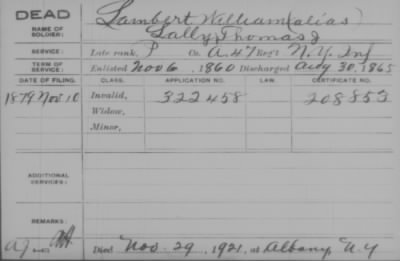 DEAD
NAME OF SOLDIER: Lambert William (alias)
Lally Thomas J
SERVICE: Late rank, P Co. A, 47 Reg't N.Y. Inf
TERM OF SERVICE: Enlisted Nov 6, 1860 Discharged Aug 30, 1865
DATE OF FILING. CLASS. APPLICATION NO. LAW. CERTIFICATE NO.
1879 Nov 10 Invalid, 322458 208853
Widow,
Minor,
ADDITIONAL SERVICES:
REMARKS:
Died Nov. 29, 1921, at Albany, N.Y